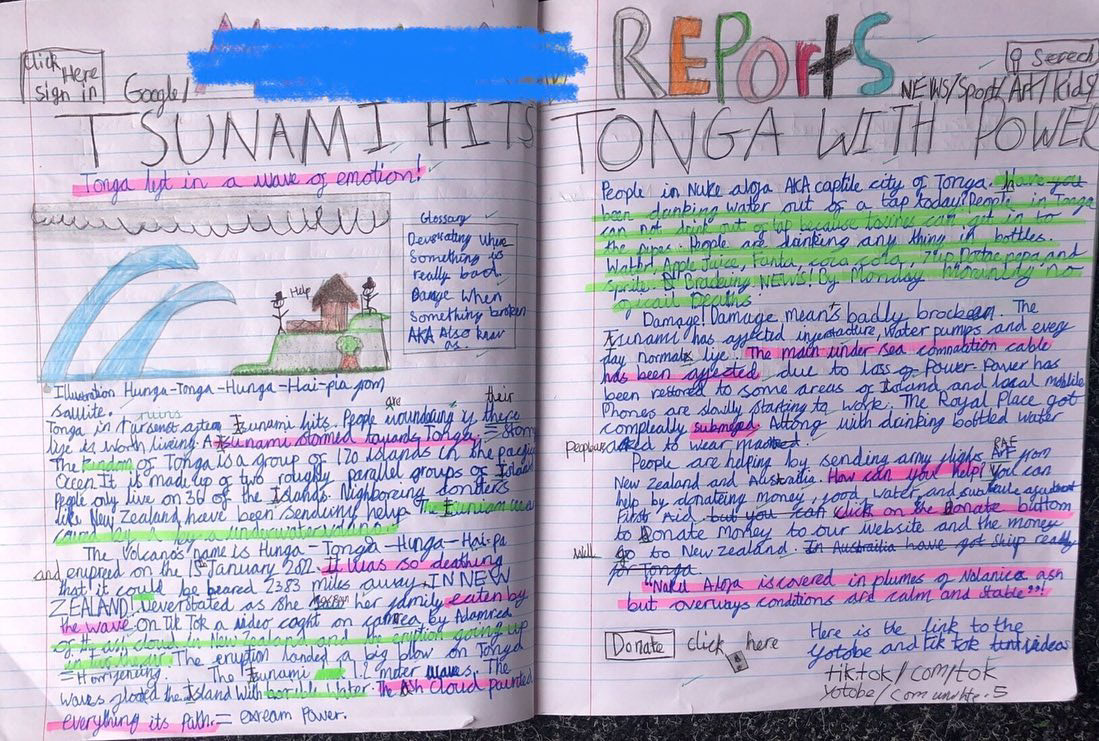 Click
Here
sign in
Google/
REPOrtS
Serech
NEWS/Sport/Art/kids/
TSUNAMI HITS TONGA WITH POWER
Tonga left in a wave of emotion!
Help
Glossary
Deverating When
something is
really bad.
Damge When
something broken
AKA Also knew
as.
Illustration Hunga-Tonga-Hunga-Hai-pia from
sallite.
ruins
Tonga in after Tsunami hits. People are is there their
life is worth living. A tsunami stormed towards Tonga, = storm
The kindom of Tonga is a group of 170 islands in the pacific
Ocean. It is made up of two roughly parallel groups of Island
People only live on 36 of the Islands. Nighboring
like New Zealand have been sendung help. The
by a underwater
The Volcano's name is Hunga-Tonga-Hunga-Hai-pa
and erupred on the 15th January 2022. It was so deathing
that it could be heared 2383 miles away, IN NEW
ZEALAND! Deverstated as she her family eaten by
the wave on Tik Tok a video caght on camrea by
of ash cloud in New Zealand and the eruption going up
The eruption landed a big blow on Tonga
= Horrifencing. The Tsunami 1.2 meter waves. The
waves the Island with horrible Water. The Ash cloud painted
everything its path. = exream Power.
People in Nuke alofa AKA captile city of Tonga. have you
been drinking water out of a tap today? People in Tonga
can not drink out of tap because toxines can get in to
the pipes. People are drinking any thing in bottles.
Water, Apple Juice, Fanta, coca cola, 7up, and
sprite. Breaking NEWS! By Monday no
Deaths!
Damage! Damage mean's badly brocken. The
Tsunami has affected Water pumps and every
day normal life. The main under sea comnation cable
has been affected due to loss of Power. Power has
been restored to some areas of Island, and local mobile
Phones are slowly starting to work. The Royal Place got
compleatly submged. Along with drinking bottled water
to wear masked.
People are helping by sending army flights RAF from
New Zealand and Australia. How can your help! You can
help by donateing money, food, water, and
First Aid. but you can click on the Donate buttom
to Donate Money to our website and the money
will go to New Zealand. In Austrailia have got ship ready
for Tonga.
"Naku Alofa is covered in plumes of Nolanica ash
but overways conditions are calm and stable"!
Donate click here
Here is the link to the
Yotobe and tik tok videos
tiktok/com/tok
yotobe/com